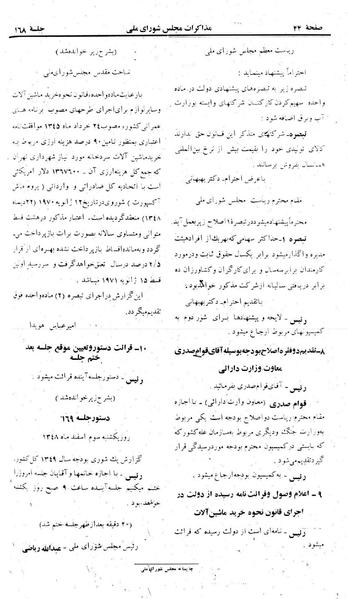 صفحهٔ ۲۲
مذاکرات مجلس شورای ملی
جلسهٔ ۱۶۸
ریاست معظم مجلس شورای ملی
احتراماً پیشنهاد مینماید :
تبصره زیر به تبصره‌های پیشنهادی دولت در ماده
واحده سهیم‌کردن کارکنان شرکتهای وابسته بوزارت
آب و برق اضافه شود :
تبصره ـ شرکتهای متذکر این قانون حق ندارند
کالای تولیدی خود را بقیمت بیش از نرخ بین‌المللی
بفروش برسانند .
با عرض احترام. دکتر بهبهانی
مقام محترم ریاست مجلس شورای ملی
احتراماً پیشنهاد میشود در تبصره ۱ اصلاح زیر بعمل آید
تبصره ـ حداکثر سهامی که بهریک از
واگذار میشود برابر یکسال حقوق ثابت و در مورد
کارمندان برابر سه‌سال و برای کارگران و کشاورزان ده
برابر دریافتی سالیانه از شرکت مذکور خواهد بود
با تقدیم احترام. دکتر بهبهانی
رئیس ـ لایحه و پیشنهادها برای شور دوم به
کمیسیونهای مربوط ارجاع میشود .
۸ـ تقدیم دو فقره اصلاح بودجه بوسیله آقای قوام صدری
معاون وزارت دارائی
رئیس ـ آقای قوام صدری بفرمائید .
قوام صدری (معاون وزارت دارائی) ـ با اجازه
مقام محترم ریاست دو اصلاح بودجه است یکی مربوط
بوزارت جنگ و دیگری مربوط به سازمان غله کشور که
بایستی در کمیسیون محترم بودجه مورد رسیدگی قرار
گیرد تقدیم میشود .
رئیس ـ به کمیسیون بودجه ارجاع میشود .
۹ ـ اعلام وصول و قرائت نامه رسیده از دولت در
اجرای قانون نحوه خرید ماشین آلات
رئیس ـ نامه‌ای است از دولت رسیده که قرائت
میشود .
(بشرح زیر خوانده شد)
ساحت مقدس مجلس شورای ملی
با رعایت ماده واحده قانون نحوه خرید ماشین آلات
و سایر لوازم برای اجرای طرحهای مصوب برنامه های
عمرانی کشور مصوب ۲۴ خرداد ماه ۱۳۴۵ موافقت نامه
اعتباری بمنظور تامین ۹۰ درصد هزینه ارزی مربوط به
خرید ماشین آلات سردخانه مورد نیاز شهرداری تهران
که جمع کل هزینه ارزی آن ۱۳۹۷۶۰۰ دلار امریکائی
است با اتحادیه کل صادراتی و وارداتی ( پروم ماش
اکسپورت ) شوروی در تاریخ ۱۲ ژانویه ۱۹۷۰ (۲۲ دیماه
۱۳۴۸) منعقد گردیده است . اعتبار مذکور در هشت قسط
متوالی و متساوی سالانه بصورت برات بازپرداخت می
گردد و بمانده اقساط بازپرداخت نشده بهره‌ای از قرار
۲/۵ درصد در سال تعلق خواهد گرفت و سررسید اولین
قسط ۱۵ ژانویه ۱۹۷۱ میباشد .
این گزارش در اجرای تبصره (۲) ماده واحده فوق
تقدیم میگردد .
امیرعباس هویدا
۱۰ـ قرائت دستور و تعیین موقع جلسه بعد
ختم جلسه
رئیس ـ دستور جلسه آینده قرائت میشود .
(بشرح زیر خوانده شد)
دستور جلسه ۱۶۹
روز یکشنبه سوم اسفند ماه ۱۳۴۸
گزارش یک شوری بودجه سال ۱۳۴۹ کل کشور .
رئیس ـ با اجازه خانمها و آقایان جلسه امروز را
ختم میکنم جلسه آینده ساعت ۹ صبح روز یکشنبه
خواهد بود .
(۲۰ دقیقه بعد از ظهر جلسه ختم شد)
رئیس مجلس شورای ملی ـ عبدالله ریاضی
چاپخانه مجلس شورای ملی